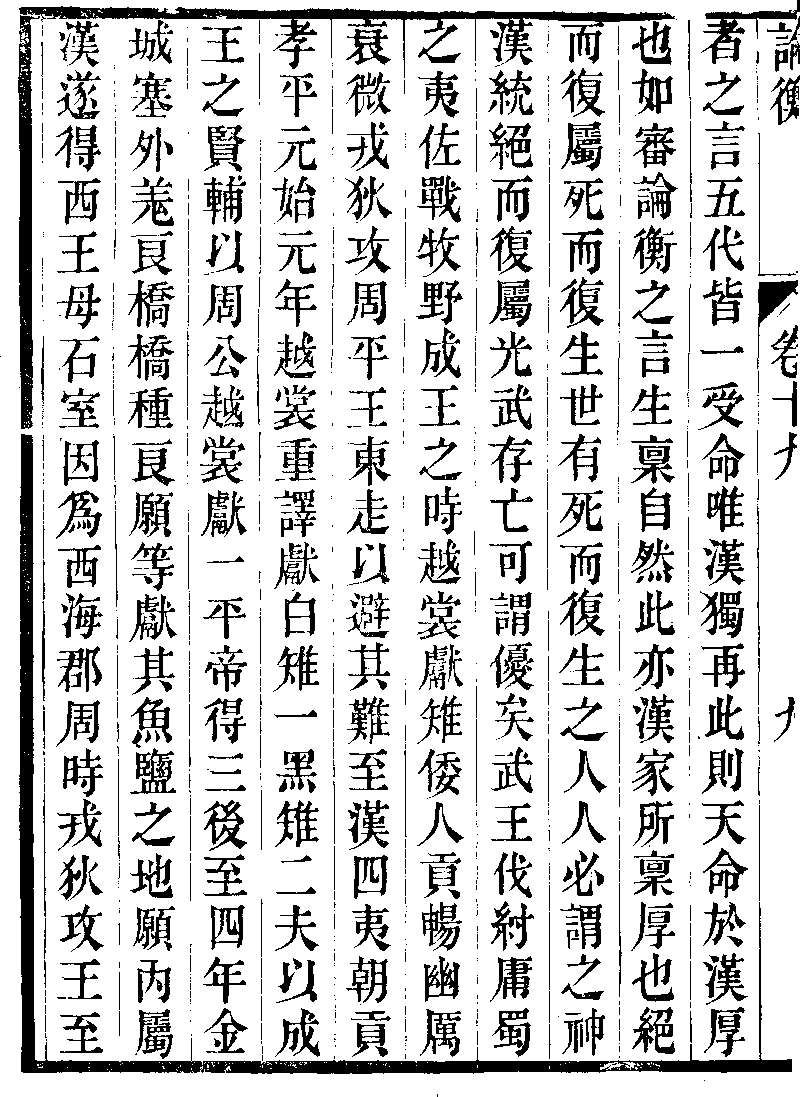 論衡 卷十九 九
者之言五代皆一受命唯漢獨再此則天命於漢厚
也如審論衡之言生稟自然此亦漢家所稟厚也絕
而復屬死而復生世有死而復生之人人必謂之神
漢統絕而復屬光武存亡可謂優矣武王伐紂庸蜀
之夷佐戰牧野成王之時越裳獻雉倭人貢暢幽厲
衰微戎狄攻周平王東走以避其難至漢四夷朝貢
孝平元始元年越裳重譯獻白雉一黑雉二夫以成
王之賢輔以周公越裳獻一平帝得三後至四年金
城塞外羗良橋橋種良願等獻其魚鹽之地願內屬
漢遂得西王母石室因爲西海郡周時戎狄攻王至